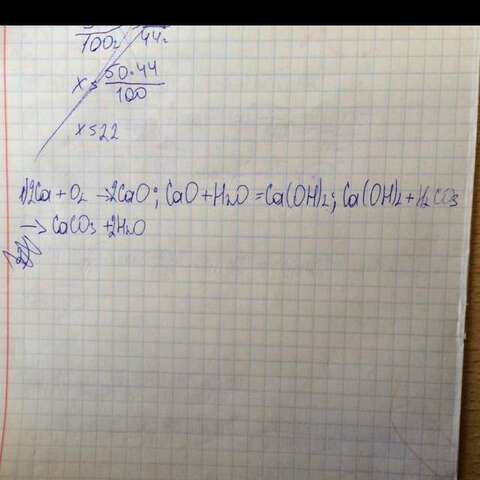 100г 44г
x = 50·44
100
x = 22
1) 2Ca + O₂ → 2CaO; CaO + H₂O = Ca(OH)₂; Ca(OH)₂ + H₂CO₃
→ CaCO₃ + 2H₂O